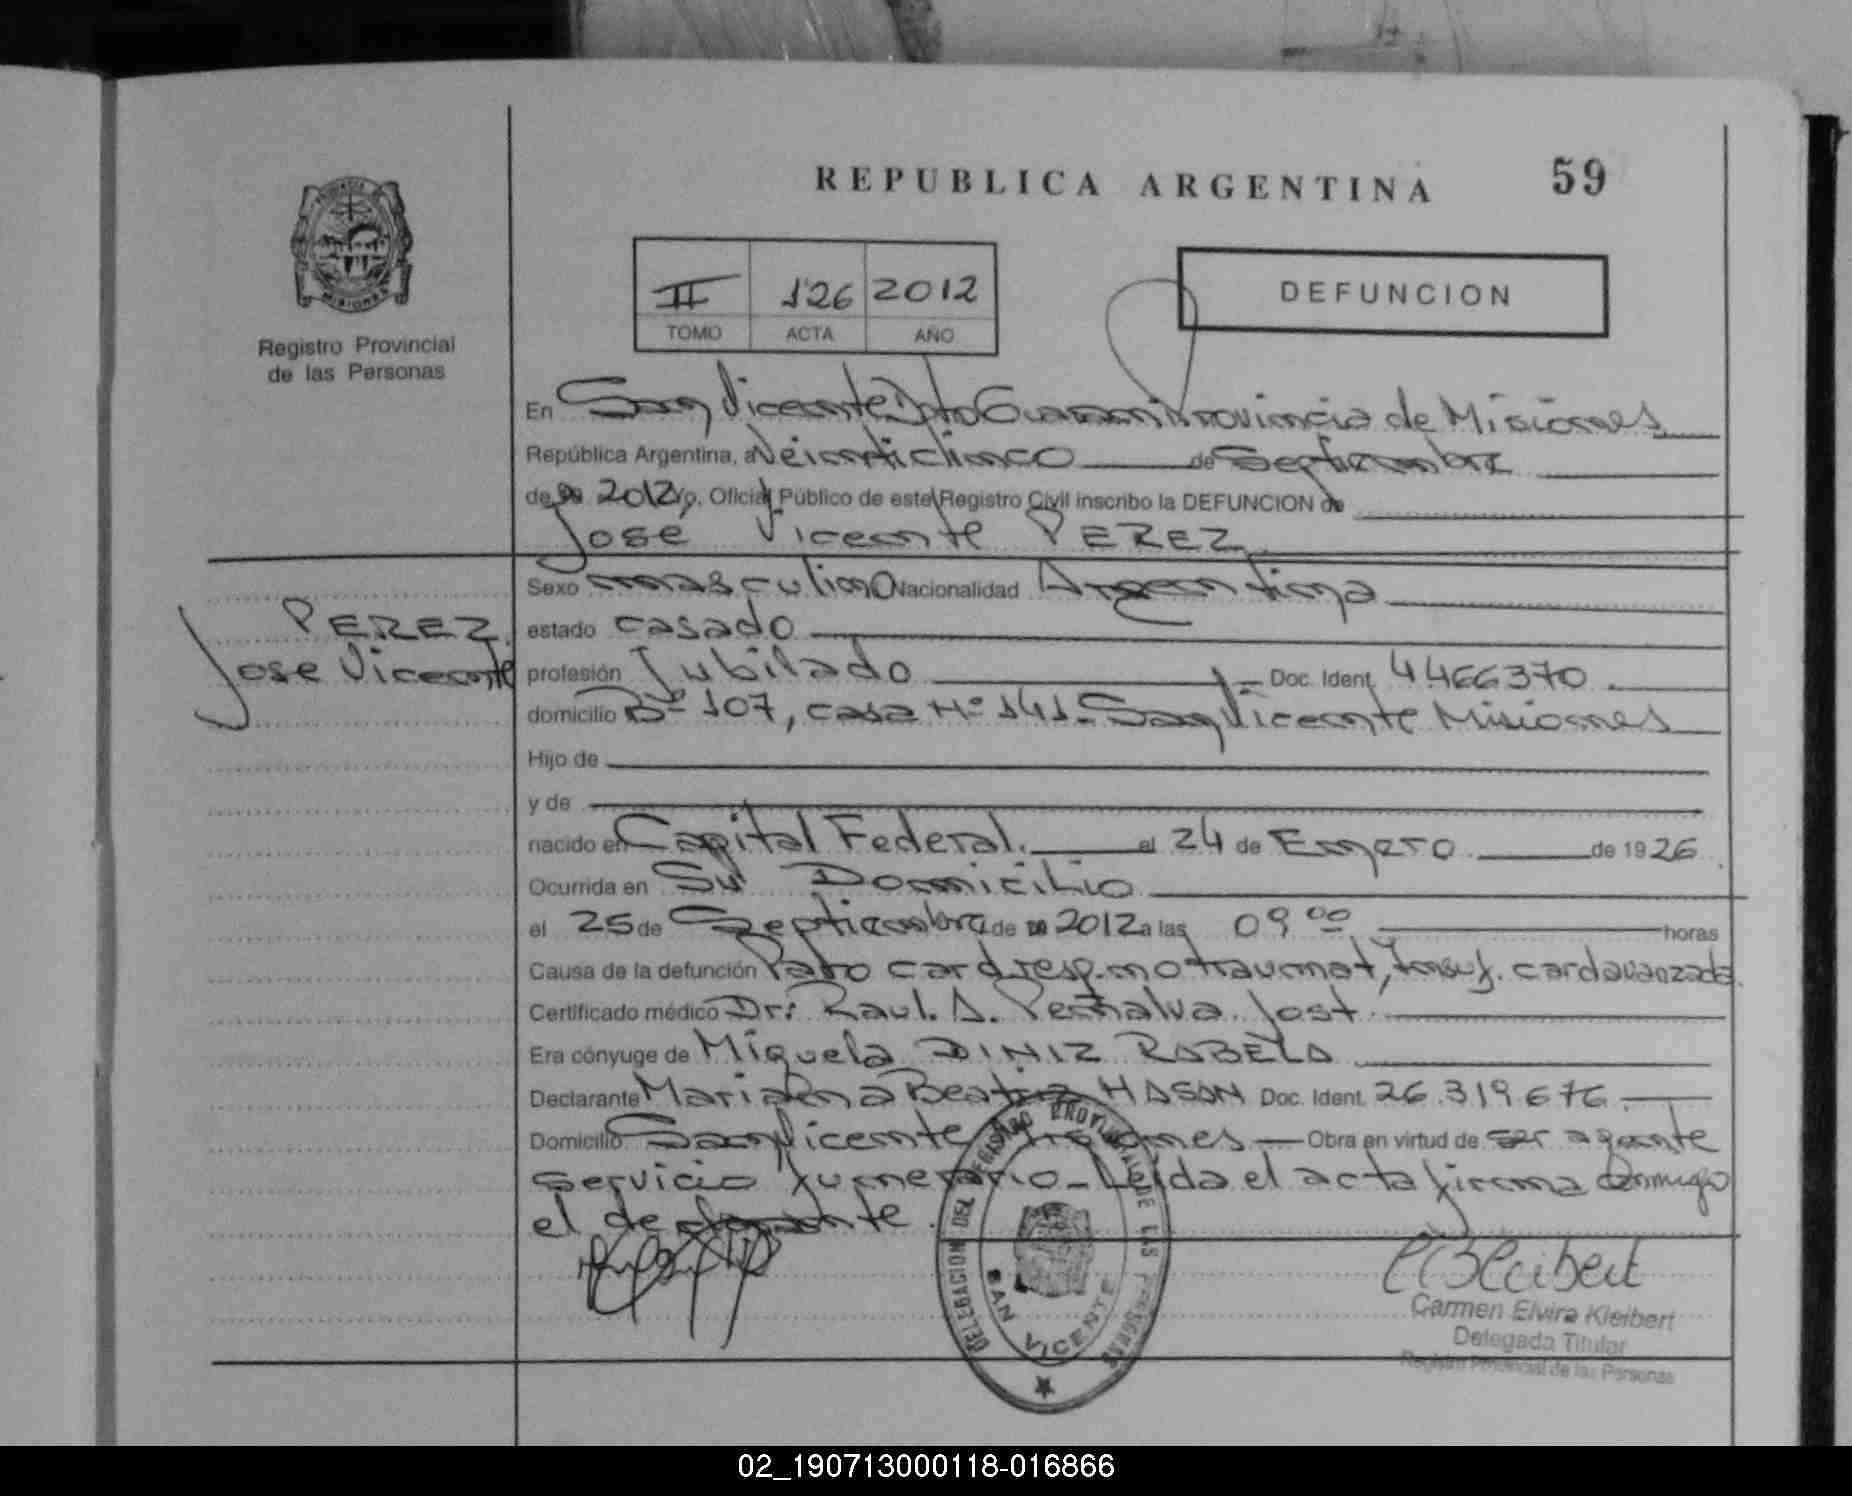 REPUBLICA ARGENTINA 59
II 126 2012
TOMO ACTA AÑO
DEFUNCION
MISIONES
Registro Provincial
de las Personas
En San Vicente Dpto Guarani Provincia de Misiones
República Argentina, a Veinticinco de Septiembre
de 2012 yo. Oficial Público de este Registro Civil inscribo la DEFUNCION de
José Vicente PEREZ
Sexo masculino Nacionalidad Argentina
PEREZ
Jose Vicente
estado casado
profesión Jubilado Doc. Ident. 4.466370
domicilio Bº 107, casa Nº 141. San Vicente Misiones
Hijo de
y de
nacido en Capital Federal. el 24 de Enero de 1926
Ocurrida en Su Domicilio
el 25 de Septiembre de 2012 a las 09 00 horas
Causa de la defunción Paro card. resp. no traumat, Insuf. card avanzada.
Certificado médico Dr: Raul. A. Peñalva Jost
Era cónyuge de Miguela DINIZ RABELO
Declarante Mariana Beatriz HASAN Doc. Ident. 26.319.676
Domicilio San Vicente Misiones Obra en virtud de ser agente
servicio funerario - Leida el acta firma conmigo
el declarante.
DELEGACION DEL REGISTRO PROVINCIAL DE LAS PERSONAS
SAN VICENTE
Carmen Elvira Kleibert
Delegada Titular
Registro Provincial de las Personas
02_190713000118-016866